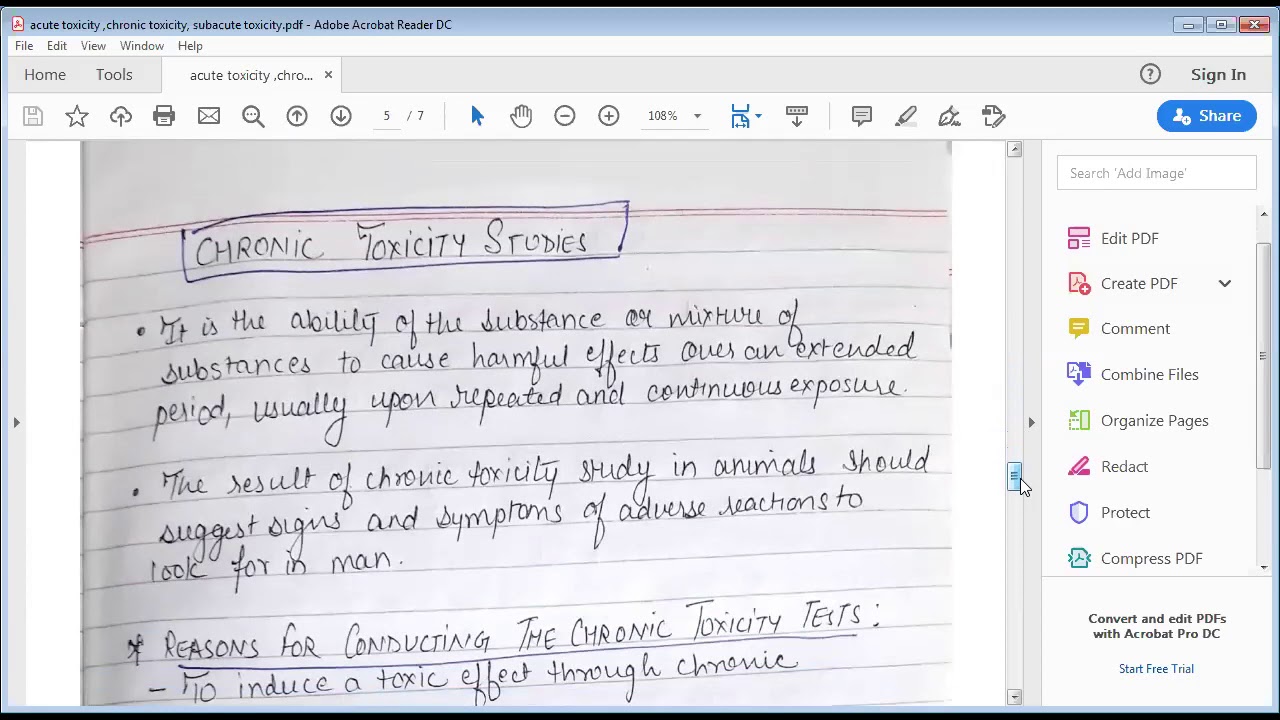 acute toxicity ,chronic toxicity, subacute toxicity.pdf - Adobe Acrobat Reader DC
File Edit View Window Help
Home Tools acute toxicity ,chro... × Sign In
5 / 7 108% Share
Search 'Add Image'
Edit PDF
Create PDF
Comment
Combine Files
Organize Pages
Redact
Protect
Compress PDF
Convert and edit PDFs
with Acrobat Pro DC
Start Free Trial
CHRONIC TOXICITY STUDIES
• It is the ability of the substance or mixture of
substances to cause harmful effects over an extended
period, usually upon repeated and continuous exposure.
• The result of chronic toxicity study in animals should
suggest signs and symptoms of adverse reactions to
look for in man.
* REASONS FOR CONDUCTING THE CHRONIC TOXICITY TESTS:
- To induce a toxic effect through chronic